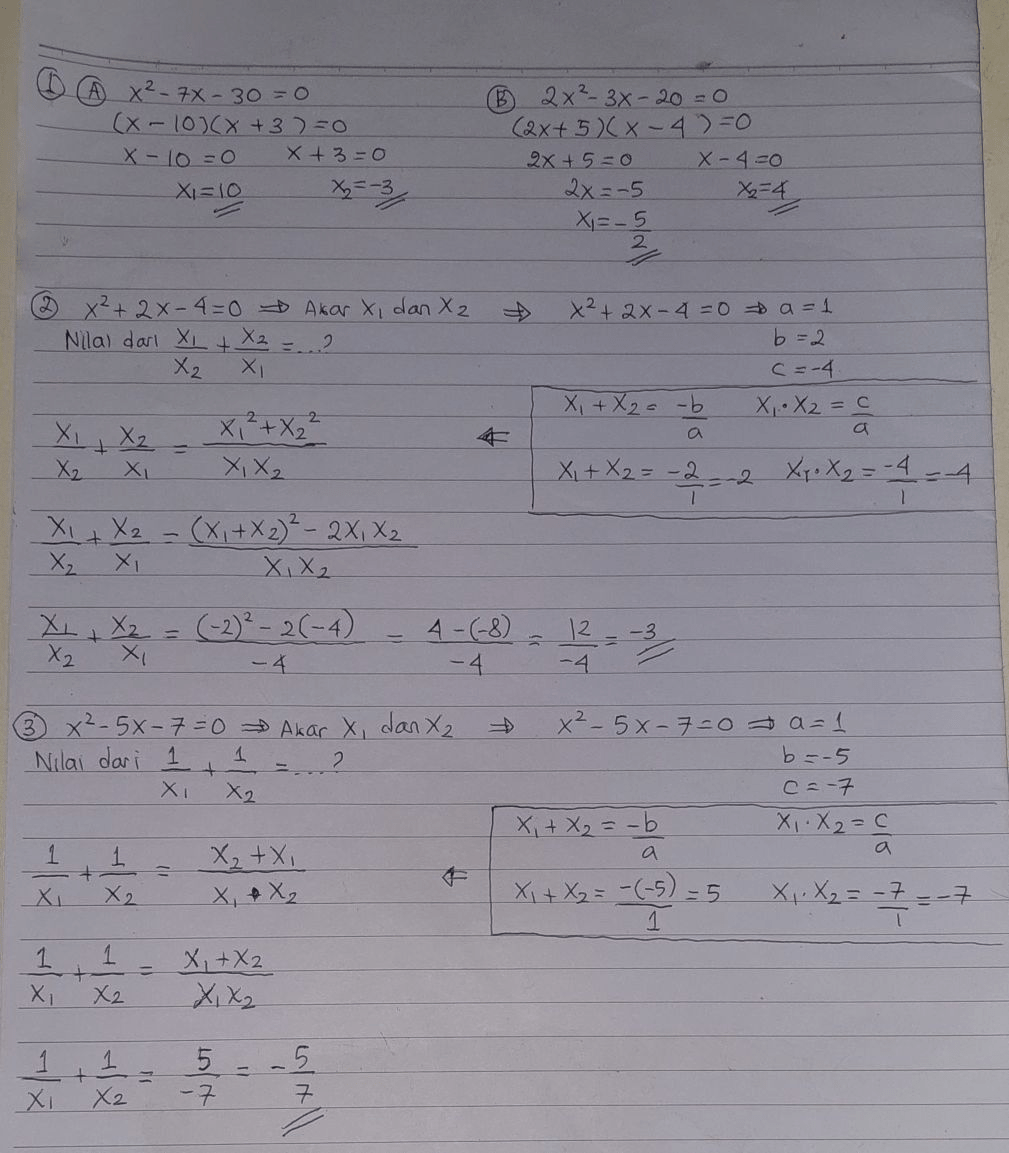 ① Ⓐ x² - 7x - 30 = 0
(x - 10)(x + 3) = 0
x - 10 = 0    x + 3 = 0
x₁ = 10    x₂ = -3
Ⓑ 2x² - 3x - 20 = 0
(2x + 5)(x - 4) = 0
2x + 5 = 0    x - 4 = 0
2x = -5    x₂ = 4
x₁ = -5/2
② x² + 2x - 4 = 0 ⇒ Akar x₁ dan x₂ ⇒ x² + 2x - 4 = 0 ⇒ a = 1
b = 2
c = -4
Nilai dari x₁/x₂ + x₂/x₁ = ...?
x₁ + x₂ = -b/a    x₁ • x₂ = c/a
x₁ + x₂ = -2/1 = -2    x₁ • x₂ = -4/1 = -4
x₁/x₂ + x₂/x₁ = (x₁² + x₂²)/(x₁x₂) ⇐
x₁/x₂ + x₂/x₁ = ((x₁ + x₂)² - 2x₁x₂)/(x₁x₂)
x₁/x₂ + x₂/x₁ = ((-2)² - 2(-4))/(-4) = (4 - (-8))/(-4) = 12/(-4) = -3
③ x² - 5x - 7 = 0 ⇒ Akar x₁ dan x₂ ⇒ x² - 5x - 7 = 0 ⇒ a = 1
b = -5
c = -7
Nilai dari 1/x₁ + 1/x₂ = ...?
x₁ + x₂ = -b/a    x₁ · x₂ = c/a
x₁ + x₂ = -(-5)/1 = 5    x₁ · x₂ = -7/1 = -7
1/x₁ + 1/x₂ = (x₂ + x₁)/(x₁ • x₂) ⇐
1/x₁ + 1/x₂ = (x₁ + x₂)/(x₁x₂)
1/x₁ + 1/x₂ = 5/(-7) = -5/7